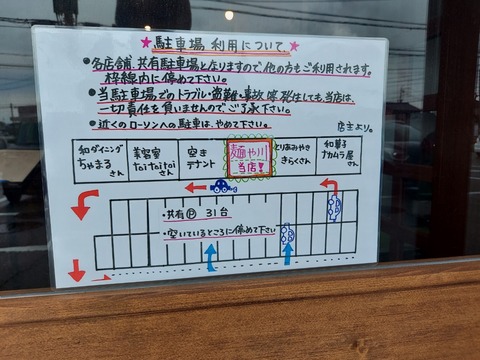 ★駐車場 利用について★
●各店舗、共有駐車場となりますので他の方もご利用されます。
枠線内に停めて下さい。
●当駐車場でのトラブル・盗難・事故等発生しても、当店は、
一切責任を負いませんのでご了承下さい。
●近くのローソンへの駐車は、やめて下さい。
店主より。
和ダイニング
ちゃまるさん
美容室
taitaitaiさん
空き
テナント
麺や川
当店!
とりあみやき
きらくさん
和菓子
ナカムラ屋さん
・共有Ⓟ 31台
・空いているところに停めて下さい